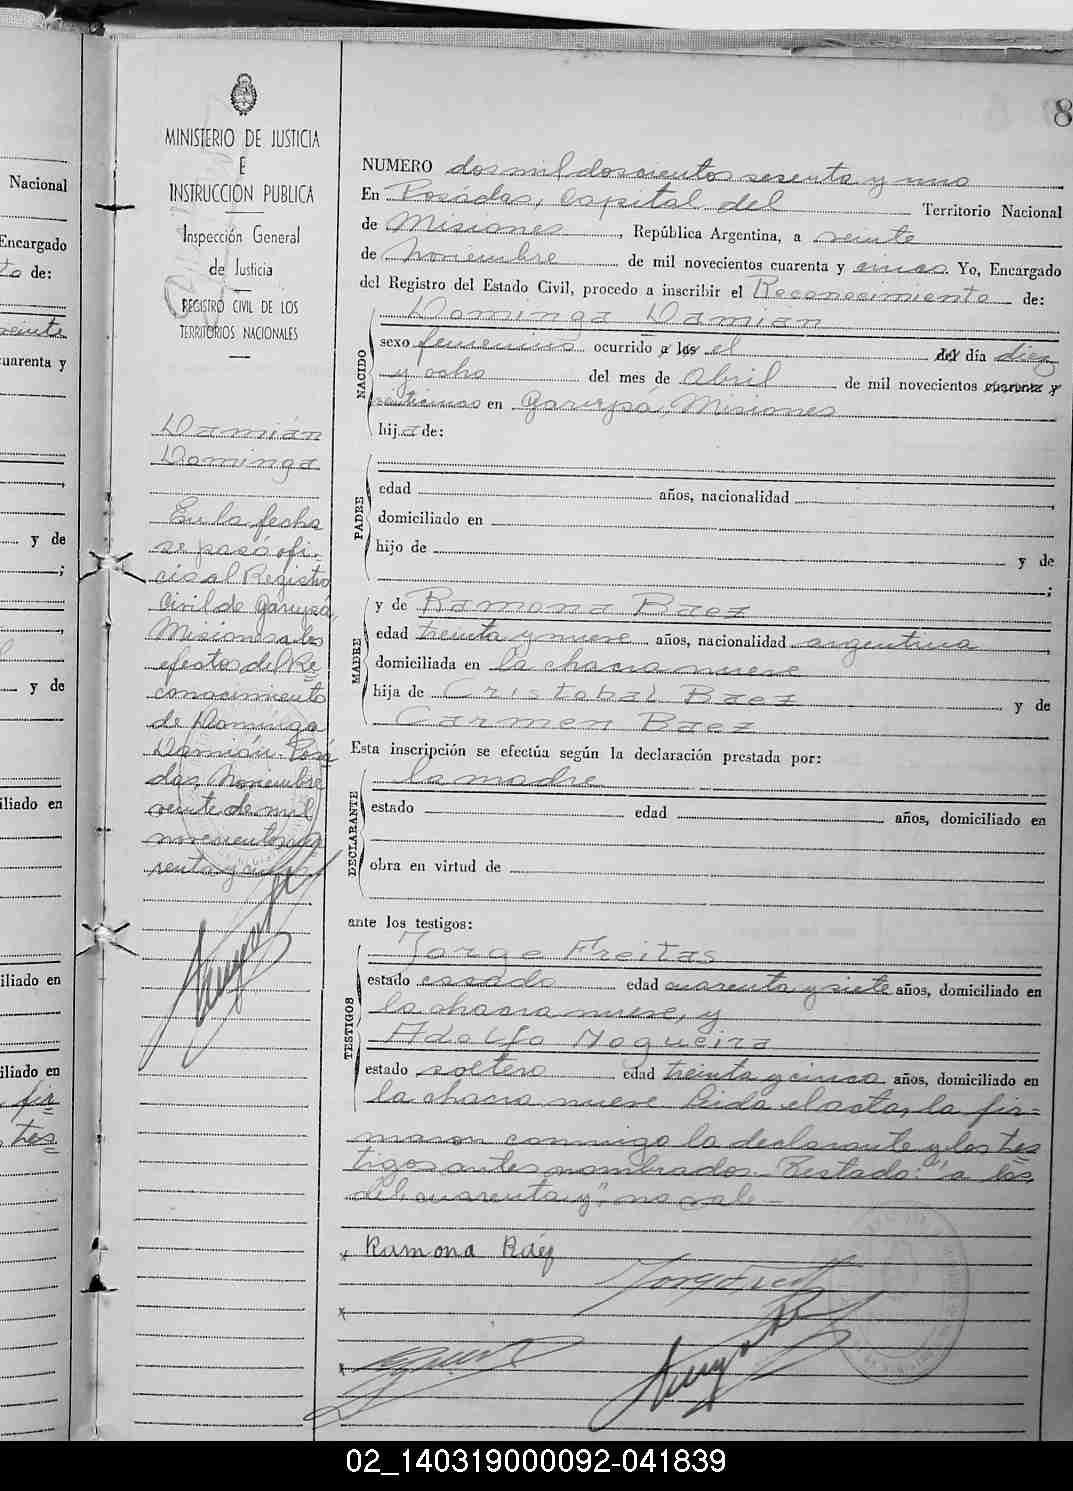 Nacional
Encargado
to de:
veinte
cuarenta y
y de
;
y de
iliado en
iliado en
iliado en
fir=
tes
8
MINISTERIO DE JUSTICIA
E
INSTRUCCIÓN PUBLICA
Inspección General
de Justicia
REGISTRO CIVIL DE LOS
TERRITORIOS NACIONALES
Damián
Dominga
En la fecha
se pasó ofi-
cio al Registro
Civil de Garupá,
Misiones a los
efectos del Re
conocimiento
de Dominga
Damián. Posa
das, Noviembre
veinte de mil
novecientos cua
renta y
NUMERO dos mil doscientos sesenta y uno
En Posadas, Capital del Territorio Nacional
de Misiones, República Argentina, a veinte
de Noviembre de mil novecientos cuarenta y cinco. Yo, Encargado
del Registro del Estado Civil, procedo a inscribir el Reconocimiento de:
Dominga Damián
NACIDO
sexo femenino ocurrido a las el del día diez
y ocho del mes de Abril de mil novecientos cuarenta y
veinticinco en Garupá, Misiones
hija de:
PADRE
edad años, nacionalidad
domiciliado en
hijo de y de
;
MADRE
y de Ramona Baez
edad treinta y nueve años, nacionalidad argentina
domiciliada en la chacra nueve
hija de Cristobal Baez y de
Carmen Baez
Esta inscripción se efectúa según la declaración prestada por:
DECLARANTE
la madre
estado edad años, domiciliado en
obra en virtud de
ante los testigos:
TESTIGOS
Jorge Freitas
estado casado edad cuarenta y siete años, domiciliado en
la chacra nueve, y
Adolfo Nogueira
estado soltero edad treinta y cinco años, domiciliado en
la chacra nueve. Leída el acta, la fir=
maron conmigo la declarante y los tes
tigos antes nombrados. Restado: "a las,
del, cuarenta y", no vale-
x Ramona Báez
x
x
02_140319000092-041839